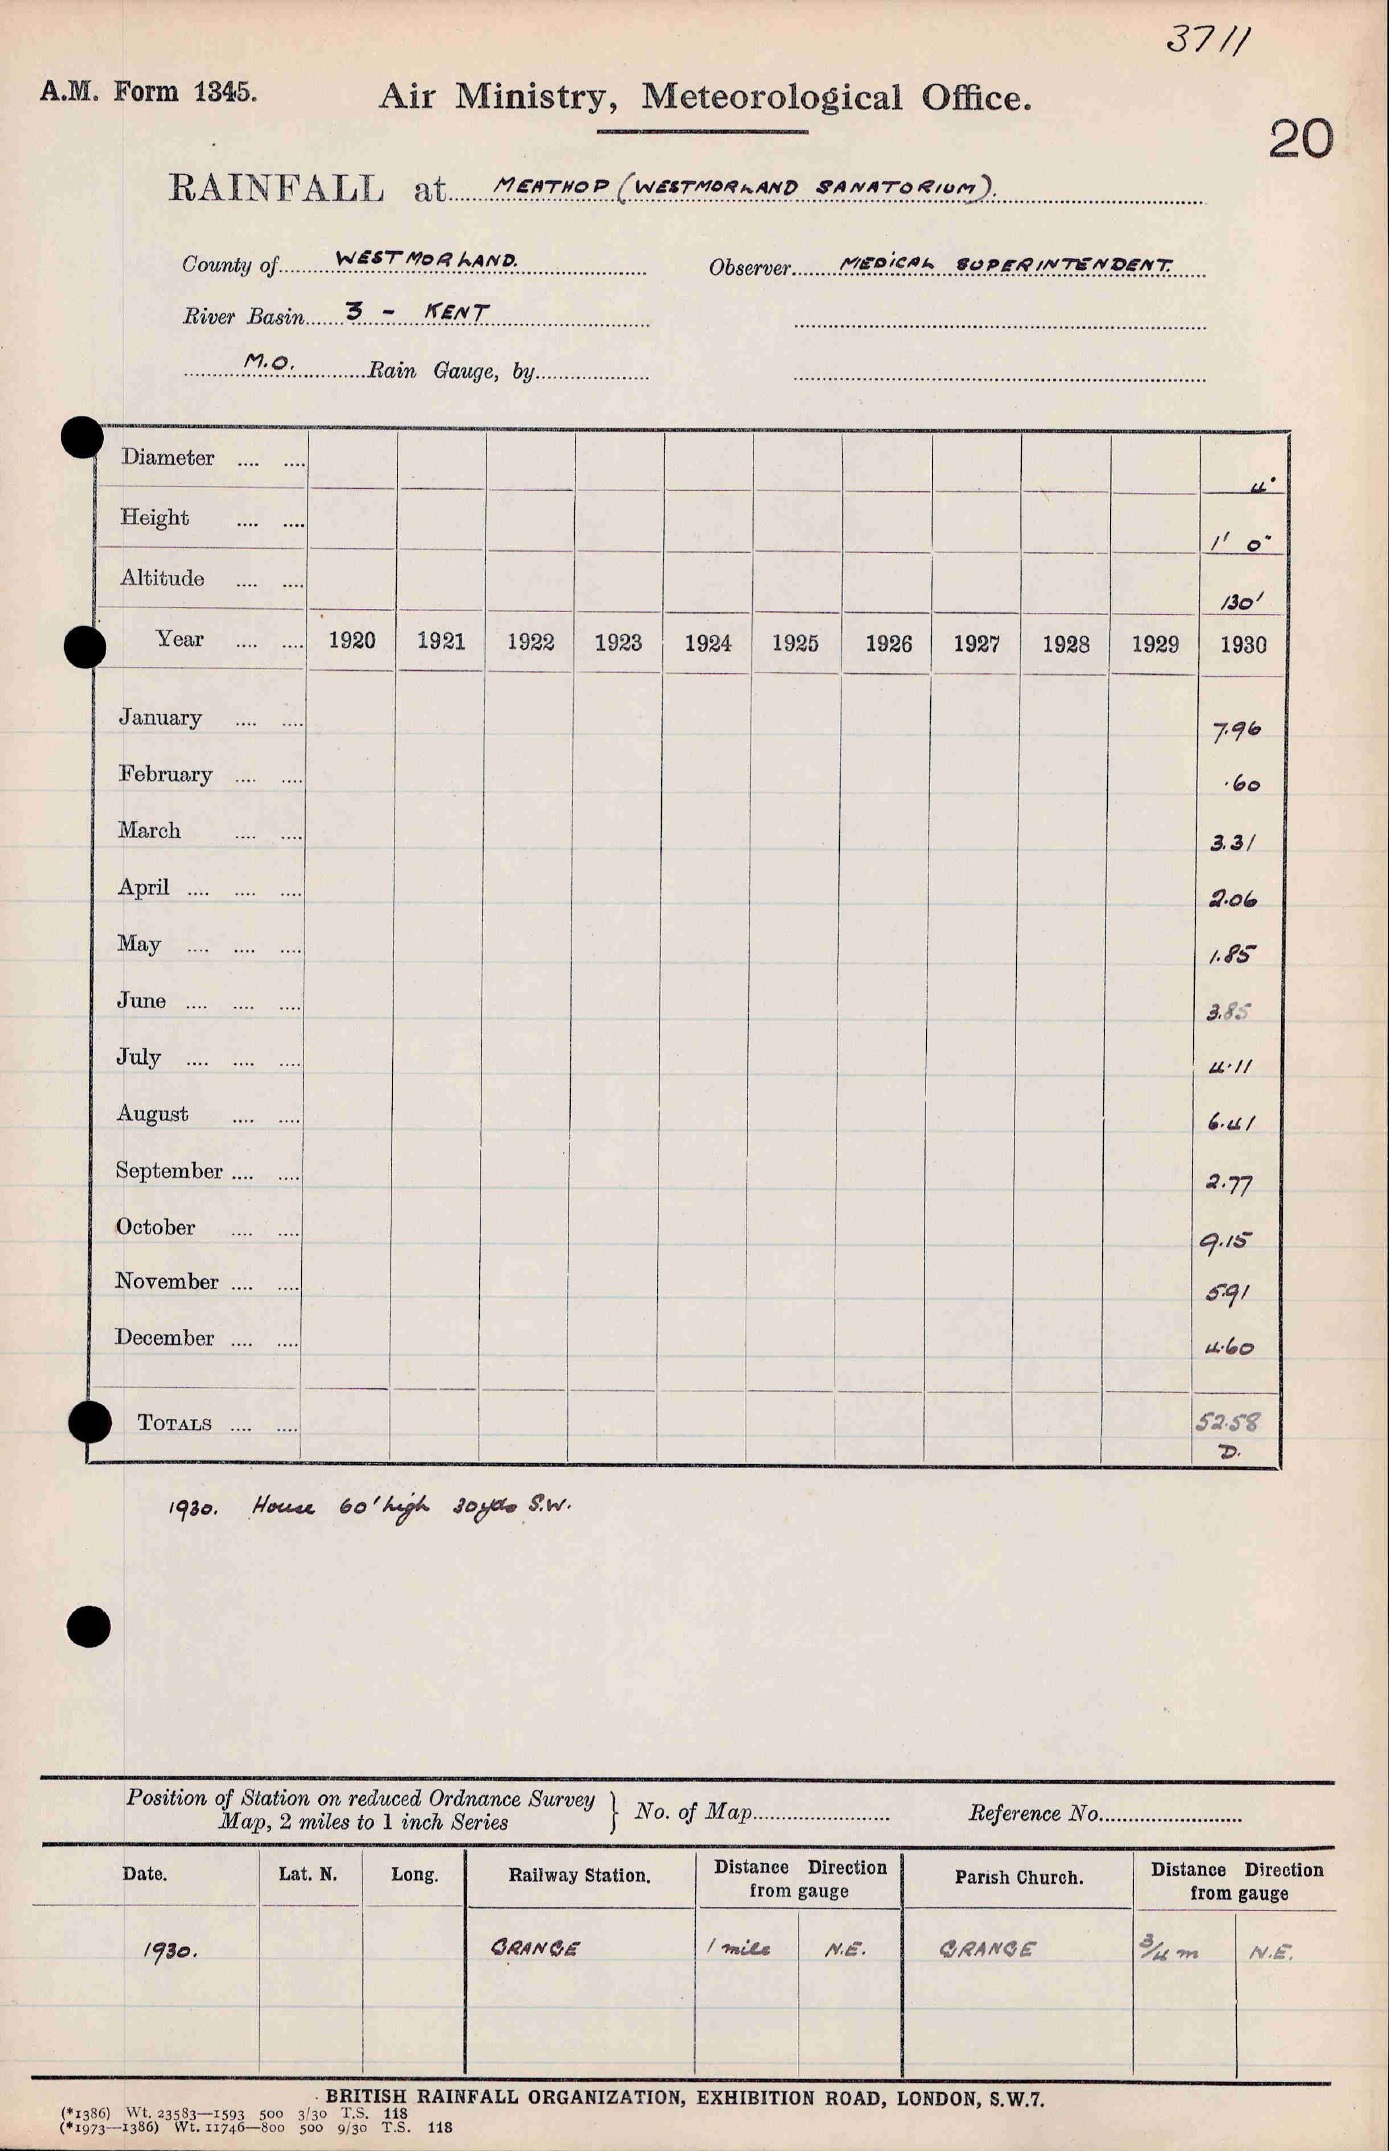 3711
A.M. Form 1345. Air Ministry, Meteorological Office.
20
RAINFALL at MEATHOP (WESTMORLAND SANATORIUM).
County of WESTMORLAND. Observer MEDICAL SUPERINTENDENT.
River Basin 3 - KENT
M.O. Rain Gauge, by
Diameter .... .... 4"
Height .... .... 1' 0"
Altitude .... .... 130'
Year .... .... 1920 1921 1922 1923 1924 1925 1926 1927 1928 1929 1930
January .... .... 7.96
February .... .... .60
March .... .... 3.31
April .... .... .... 2.06
May .... .... .... 1.85
June .... .... .... 3.85
July .... .... .... 4.11
August .... .... 6.41
September .... .... 2.77
October .... .... 9.15
November .... .... 5.91
December .... .... 4.60
TOTALS .... .... 52.58
D.
1930. House 60' high 30yds S.W.
Position of Station on reduced Ordnance Survey
Map, 2 miles to 1 inch Series } No. of Map Reference No.
Date. Lat. N. Long. Railway Station. Distance Direction from gauge Parish Church. Distance Direction from gauge
1930. GRANGE 1 mile N.E. GRANGE 3/4 m N.E.
BRITISH RAINFALL ORGANIZATION, EXHIBITION ROAD, LONDON, S.W.7.
(*1386) Wt. 23583—1593 500 3/30 T.S. 118
(*1973—1386) Wt. 11746—800 500 9/30 T.S. 118